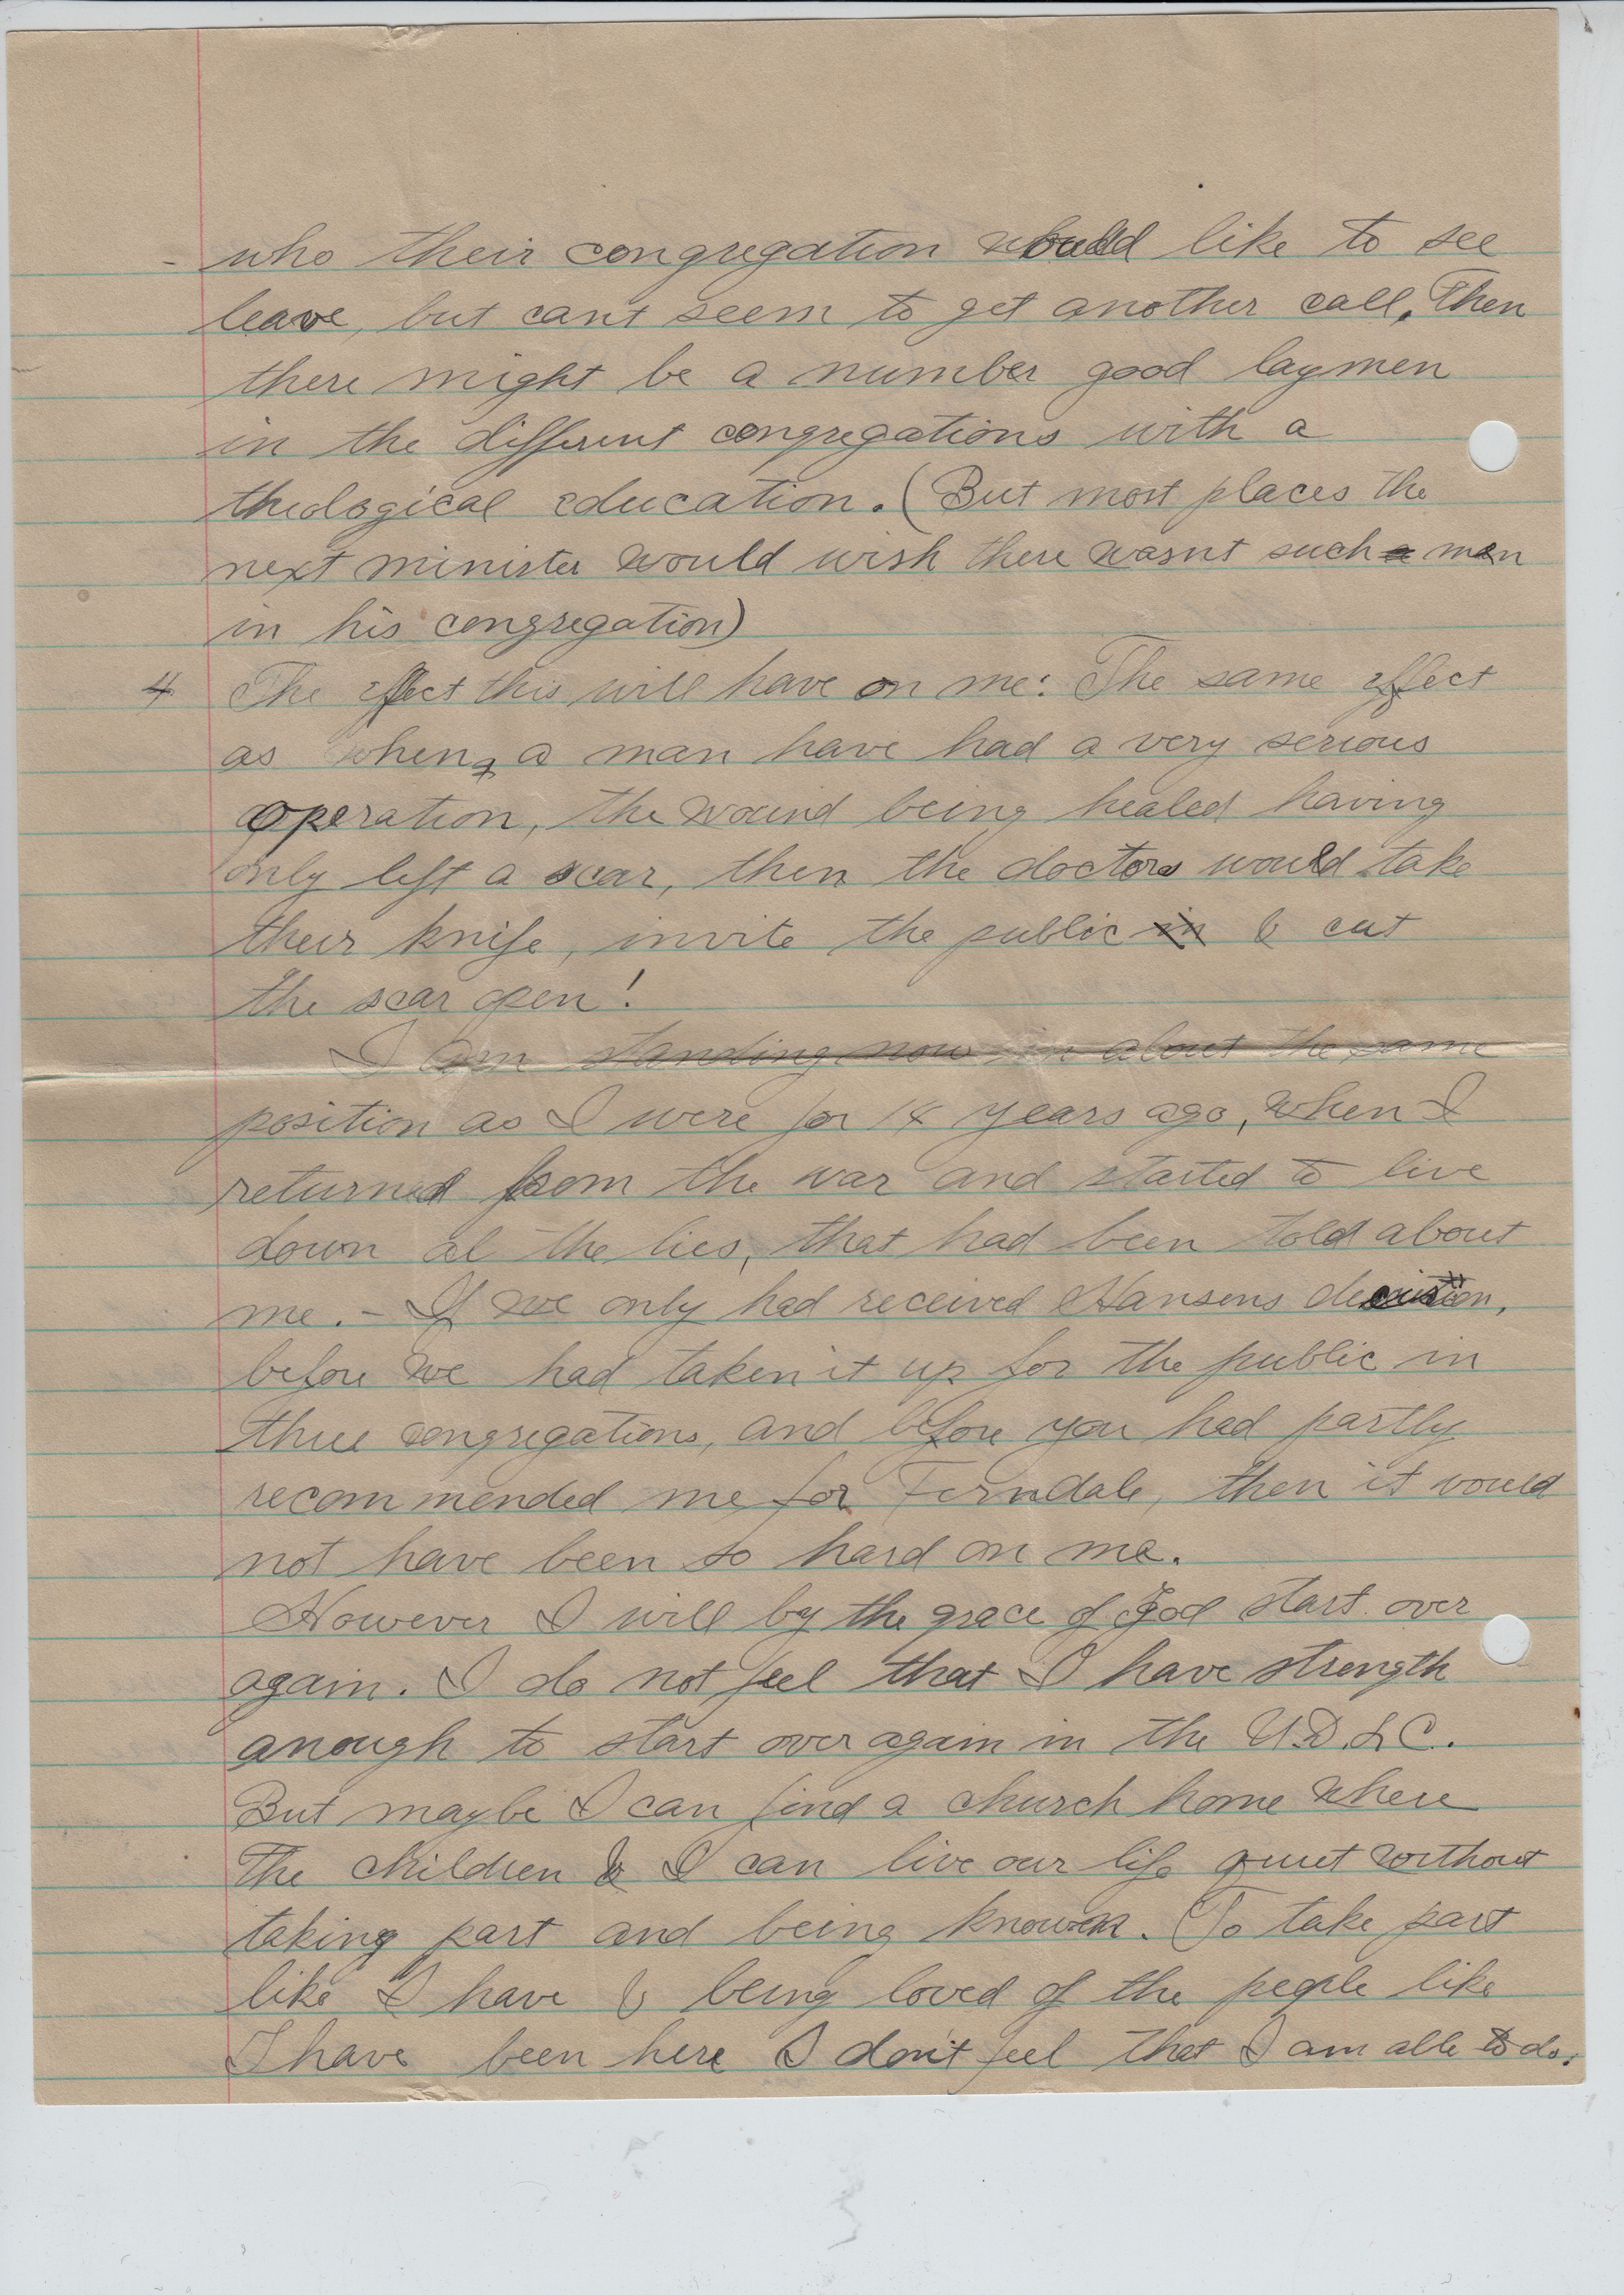 - who their congregation would like to see
leave, but cant seem to get another call. Then
there might be a number good laymen
in the different congregations with a
theological education. (But most places the
next minister would wish there wasnt such a men
in his congregation)
4 The effect this will have on me: The same effect
as when a man have had a very serious
operation, the wound being healed having
only left a scar, then the doctors would take
their knife, invite the public in & cut
the scar open!
I am standing now in about the same
position as I were for 14 years ago, when I
returned from the war and started to live
down al the lies, that had been told about
me. - If we only had received Hansens decision,
before we had taken it up for the public in
three congregations, and before you had partly
recommended me for Ferndale, then it would
not have been so hard on me.
However I will by the grace of God start over
again. I do not feel that I have strength
anough to start over again in the U.D.L.C.
But maybe I can find a church home where
the children & I can live our life quiet without
taking part and being known. To take part
like I have & being loved of the people like
I have been here I don't feel that I am able to do.